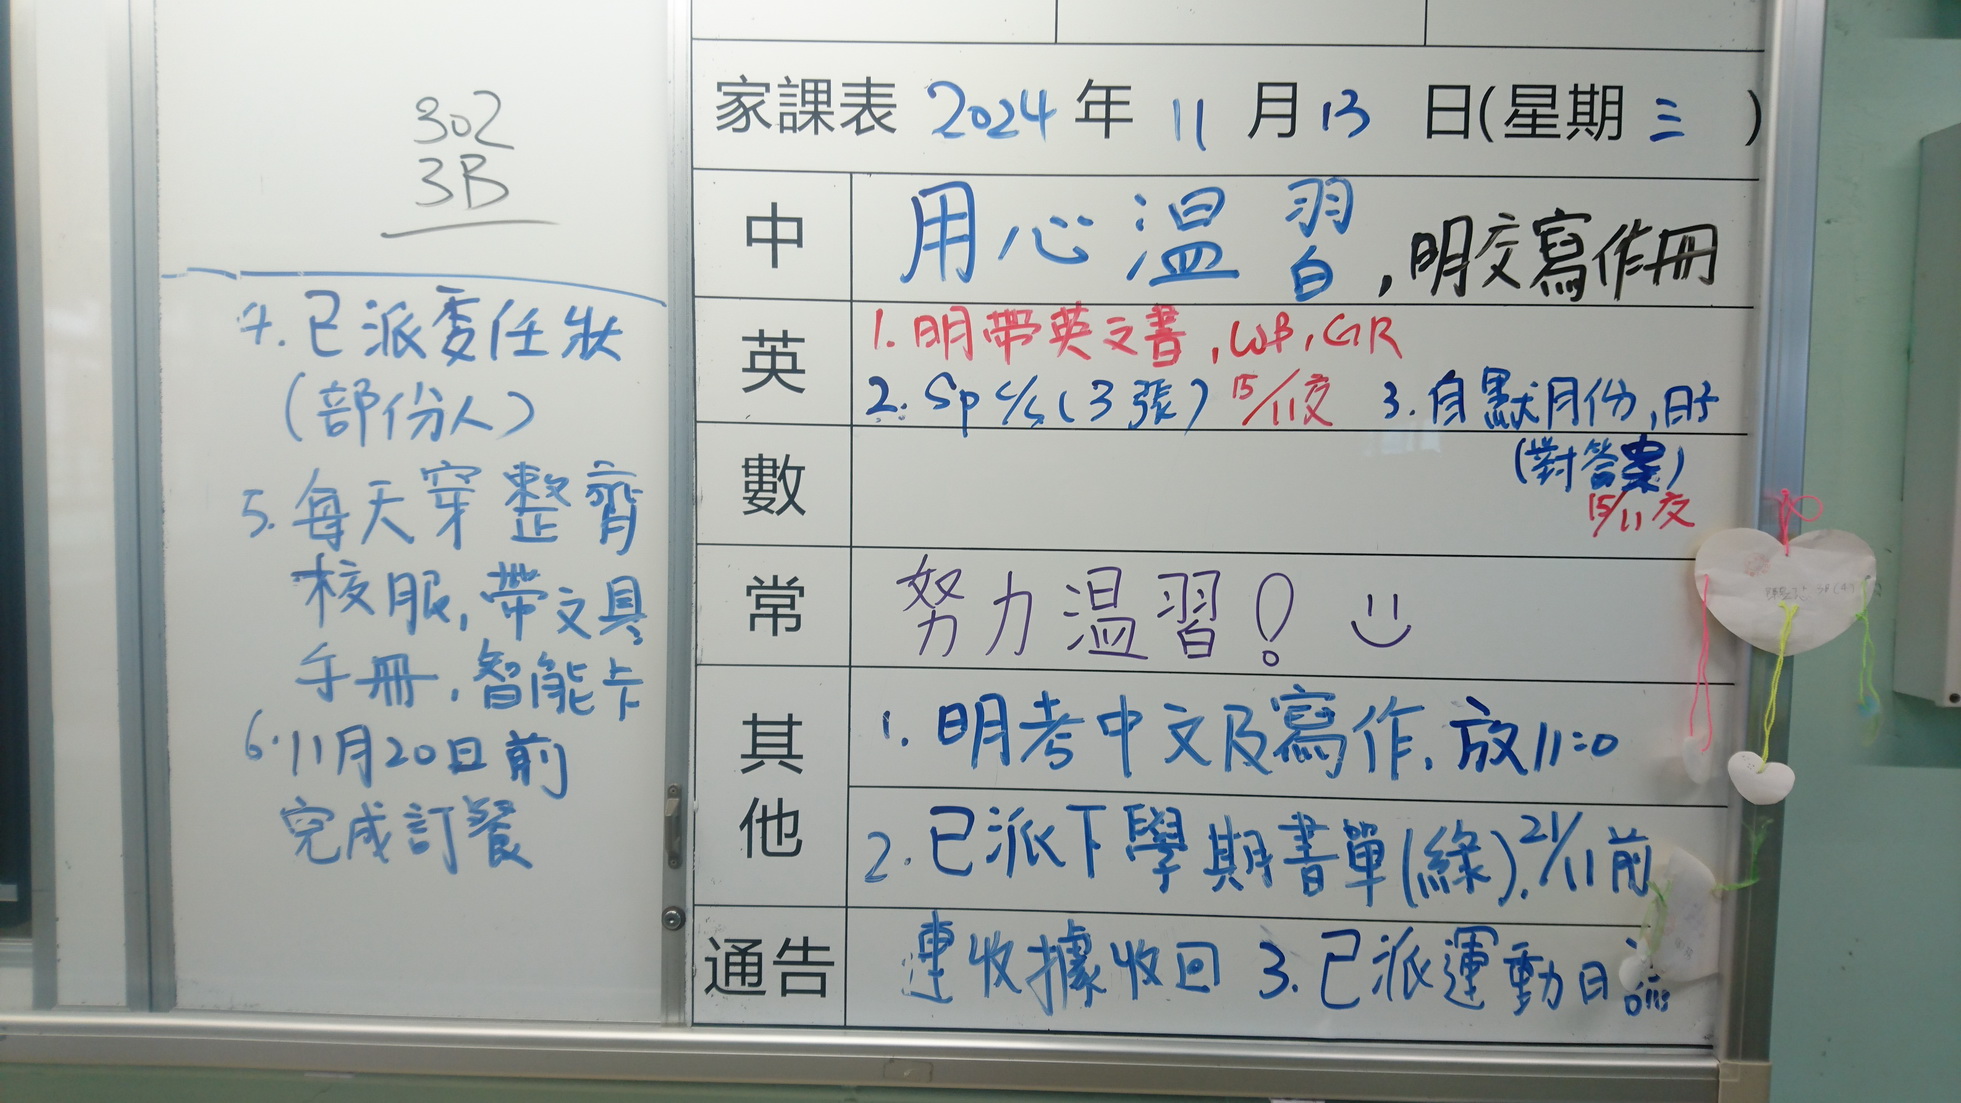 302
3B
4. 已派委任狀
(部份人)
5. 每天穿整齊
校服, 帶文具
手冊, 智能卡
6. 11月20日前
完成訂餐
家課表 2024 年 11 月 13 日(星期 三 )
中 用心溫習, 明交寫作冊
英 1. 明帶英文書, WB, GR
2. Sp c/s (3張) 15/11交 3. 自默月份, 日子
(對答案)
15/11交
數
常 努力溫習!
其他 1. 明考中文及寫作. 放11:0
2. 已派下學期書單(綠). 21/11前
通告 連收據收回 3. 已派運動日